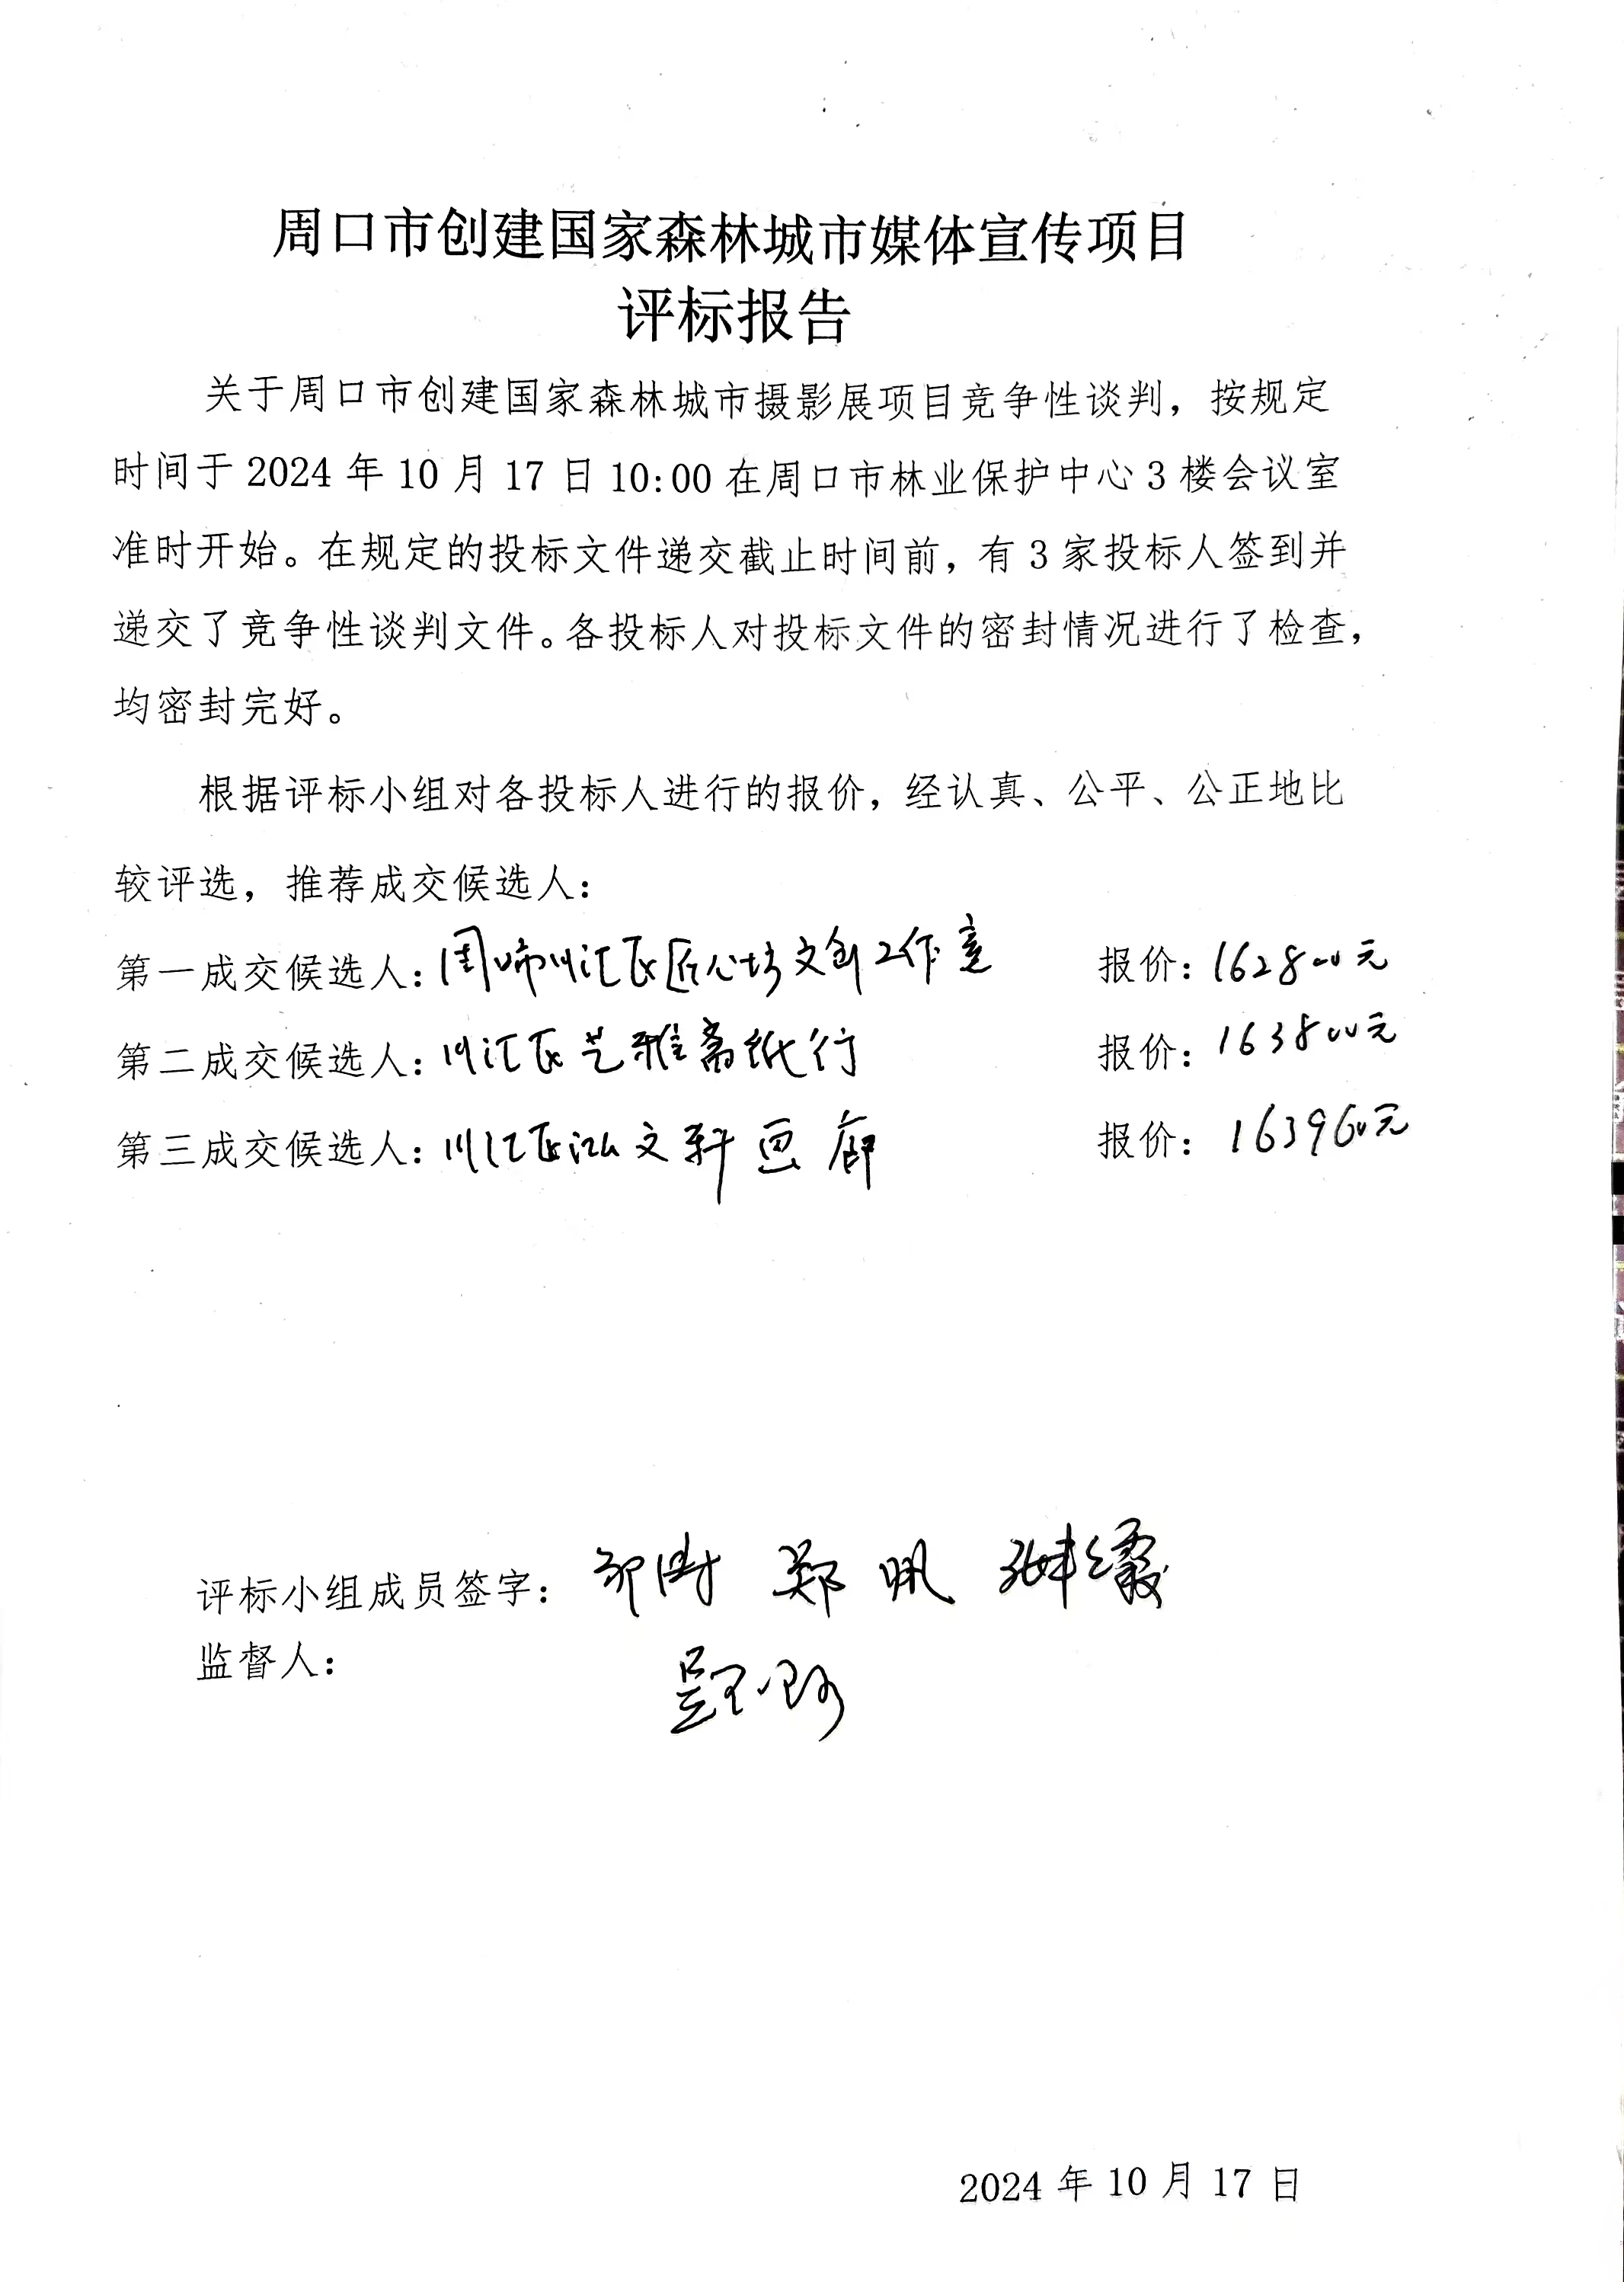 周口市创建国家森林城市媒体宣传项目
评标报告
关于周口市创建国家森林城市摄影展项目竞争性谈判，按规定
时间于 2024 年 10 月 17 日 10:00 在周口市林业保护中心 3 楼会议室
准时开始。在规定的投标文件递交截止时间前，有 3 家投标人签到并
递交了竞争性谈判文件。各投标人对投标文件的密封情况进行了检查，
均密封完好。
根据评标小组对各投标人进行的报价，经认真、公平、公正地比
较评选，推荐成交候选人：
第一成交候选人：周口市川汇区匠心坊文创工作室 报价：162800元
第二成交候选人：川汇区艺雅斋纸行 报价：163800元
第三成交候选人：川汇区泓文轩画廊 报价：163960元
评标小组成员签字：
监督人：
2024 年 10 月 17 日